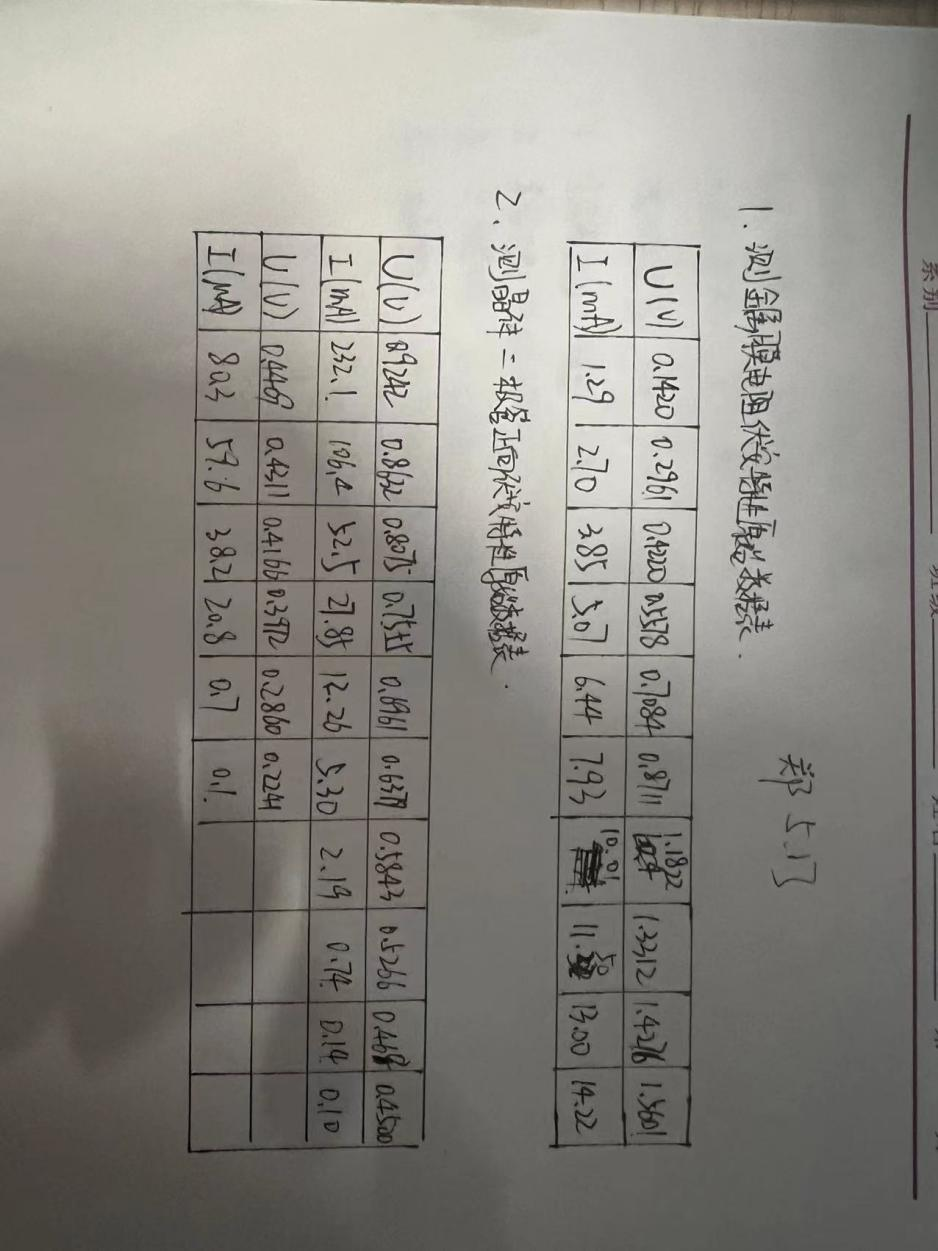 系别 班级 姓名
郑 5.17
1. 测金属膜电阻伏安特性原始数据表.
U(V) 0.1420 0.2961 0.4220 0.5578 0.7084 0.8711 1.1822 1.3312 1.4276 1.5601
I(mA) 1.29 2.70 3.85 5.07 6.44 7.93 10.01 11.50 13.00 14.22
2、测晶体二极管正向伏安特性原始数据表.
U(V) 0.9242 0.8632 0.8075 0.7545 0.6961 0.6379 0.5843 0.5266 0.4500
I(mA) 232.1 106.4 52.5 27.85 12.26 5.30 2.19 0.74 0.14 0.10
U(V) 0.4469 0.4311 0.4166 0.3972 0.2860 0.2241
I(μA) 80.3 59.6 38.2 20.8 0.7 0.1